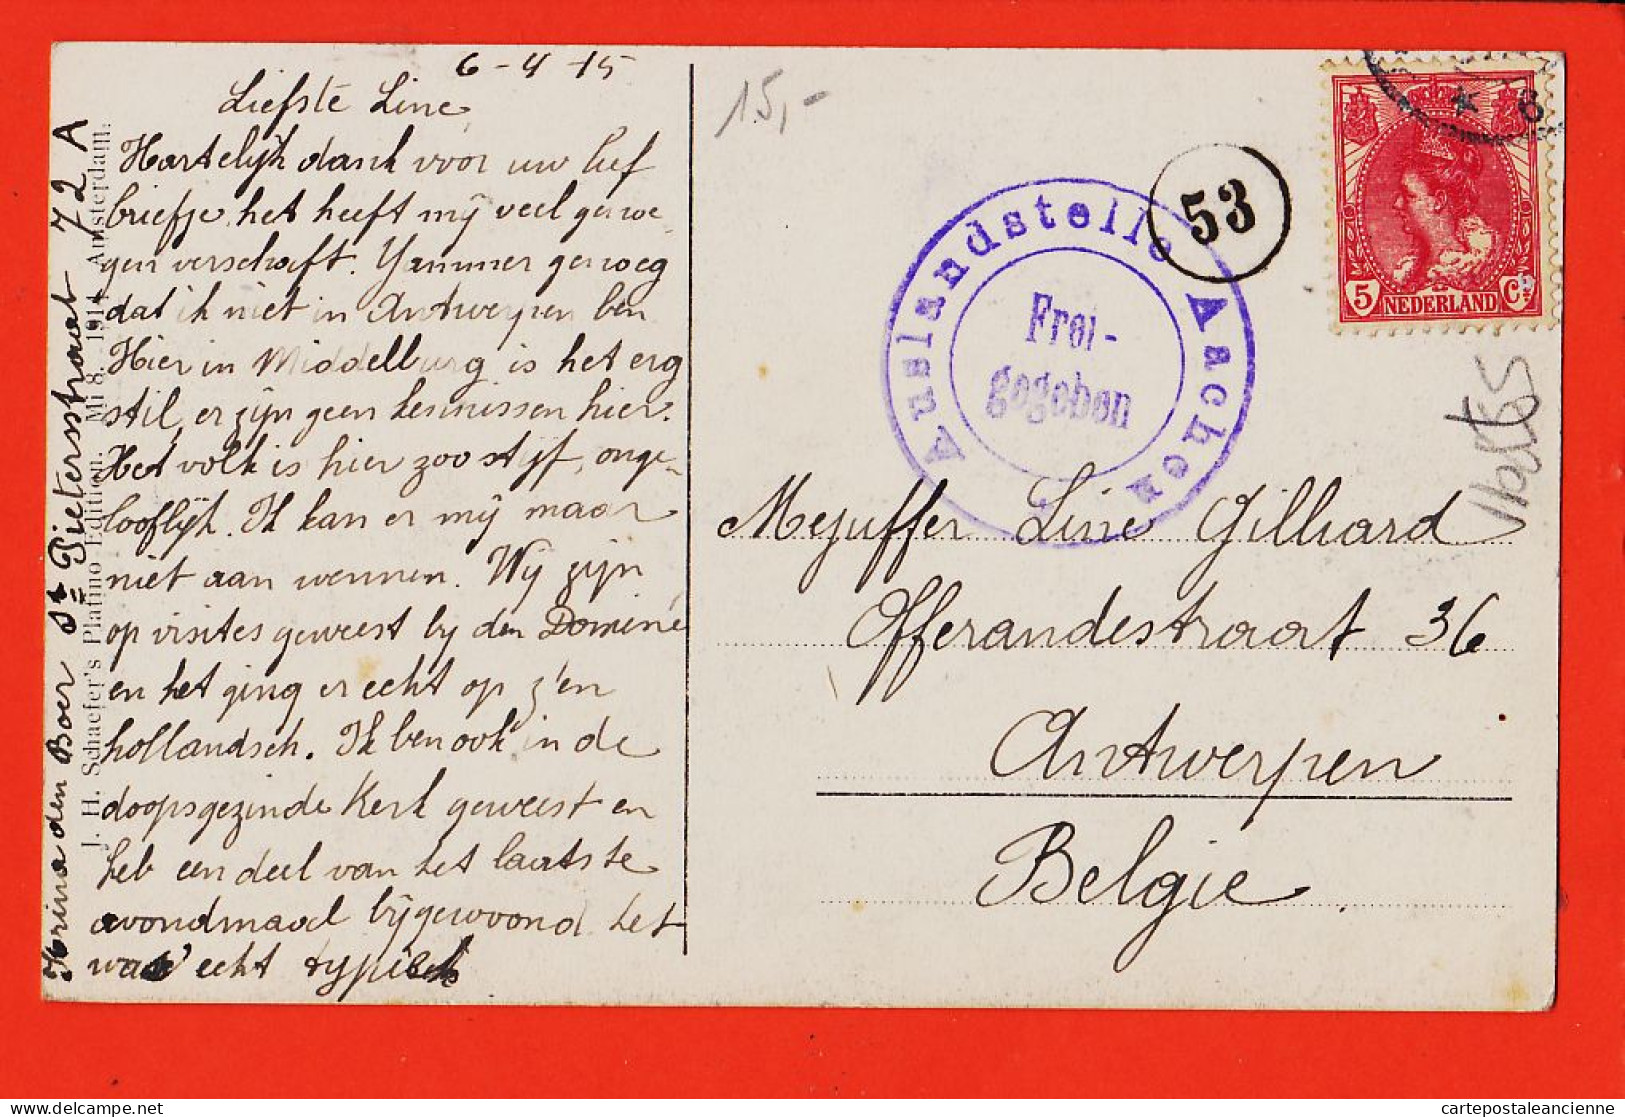 6-4-15
Liefste Line
Hartelijk dank voor uw lief
briefje, het heeft mij veel genoe-
gen verschaft. Yammer genoeg
dat ik niet in Antwerpen ben
Hier in Middelburg is het erg
stil, er zijn geen kennissen hier.
Het volk is hier zoo stijf, onge-
looflijk. Ik kan er mij maar
niet aan wennen. Wij zijn
op visites geweest bij den Dominé
en het ging er echt op z'en
hollandsch. Ik ben ook in de
doopsgezinde Kerk geweest en
heb een deel van het laatste
avondmaal bijgewoond het
was echt typisch
den Boer St Pietersstraat 72 A
J. H. Schaefer's Platino Edition. Mi 8. 1914 Amsterdam.
15,-
Auslandstelle Aachen
Frei-
gegeben
53
5 NEDERLAND Ct
Mejuffer Line Gilliard
Offerandestraat 36
Antwerpen
Belgie.
delcampe.net
cartepostaleancienne